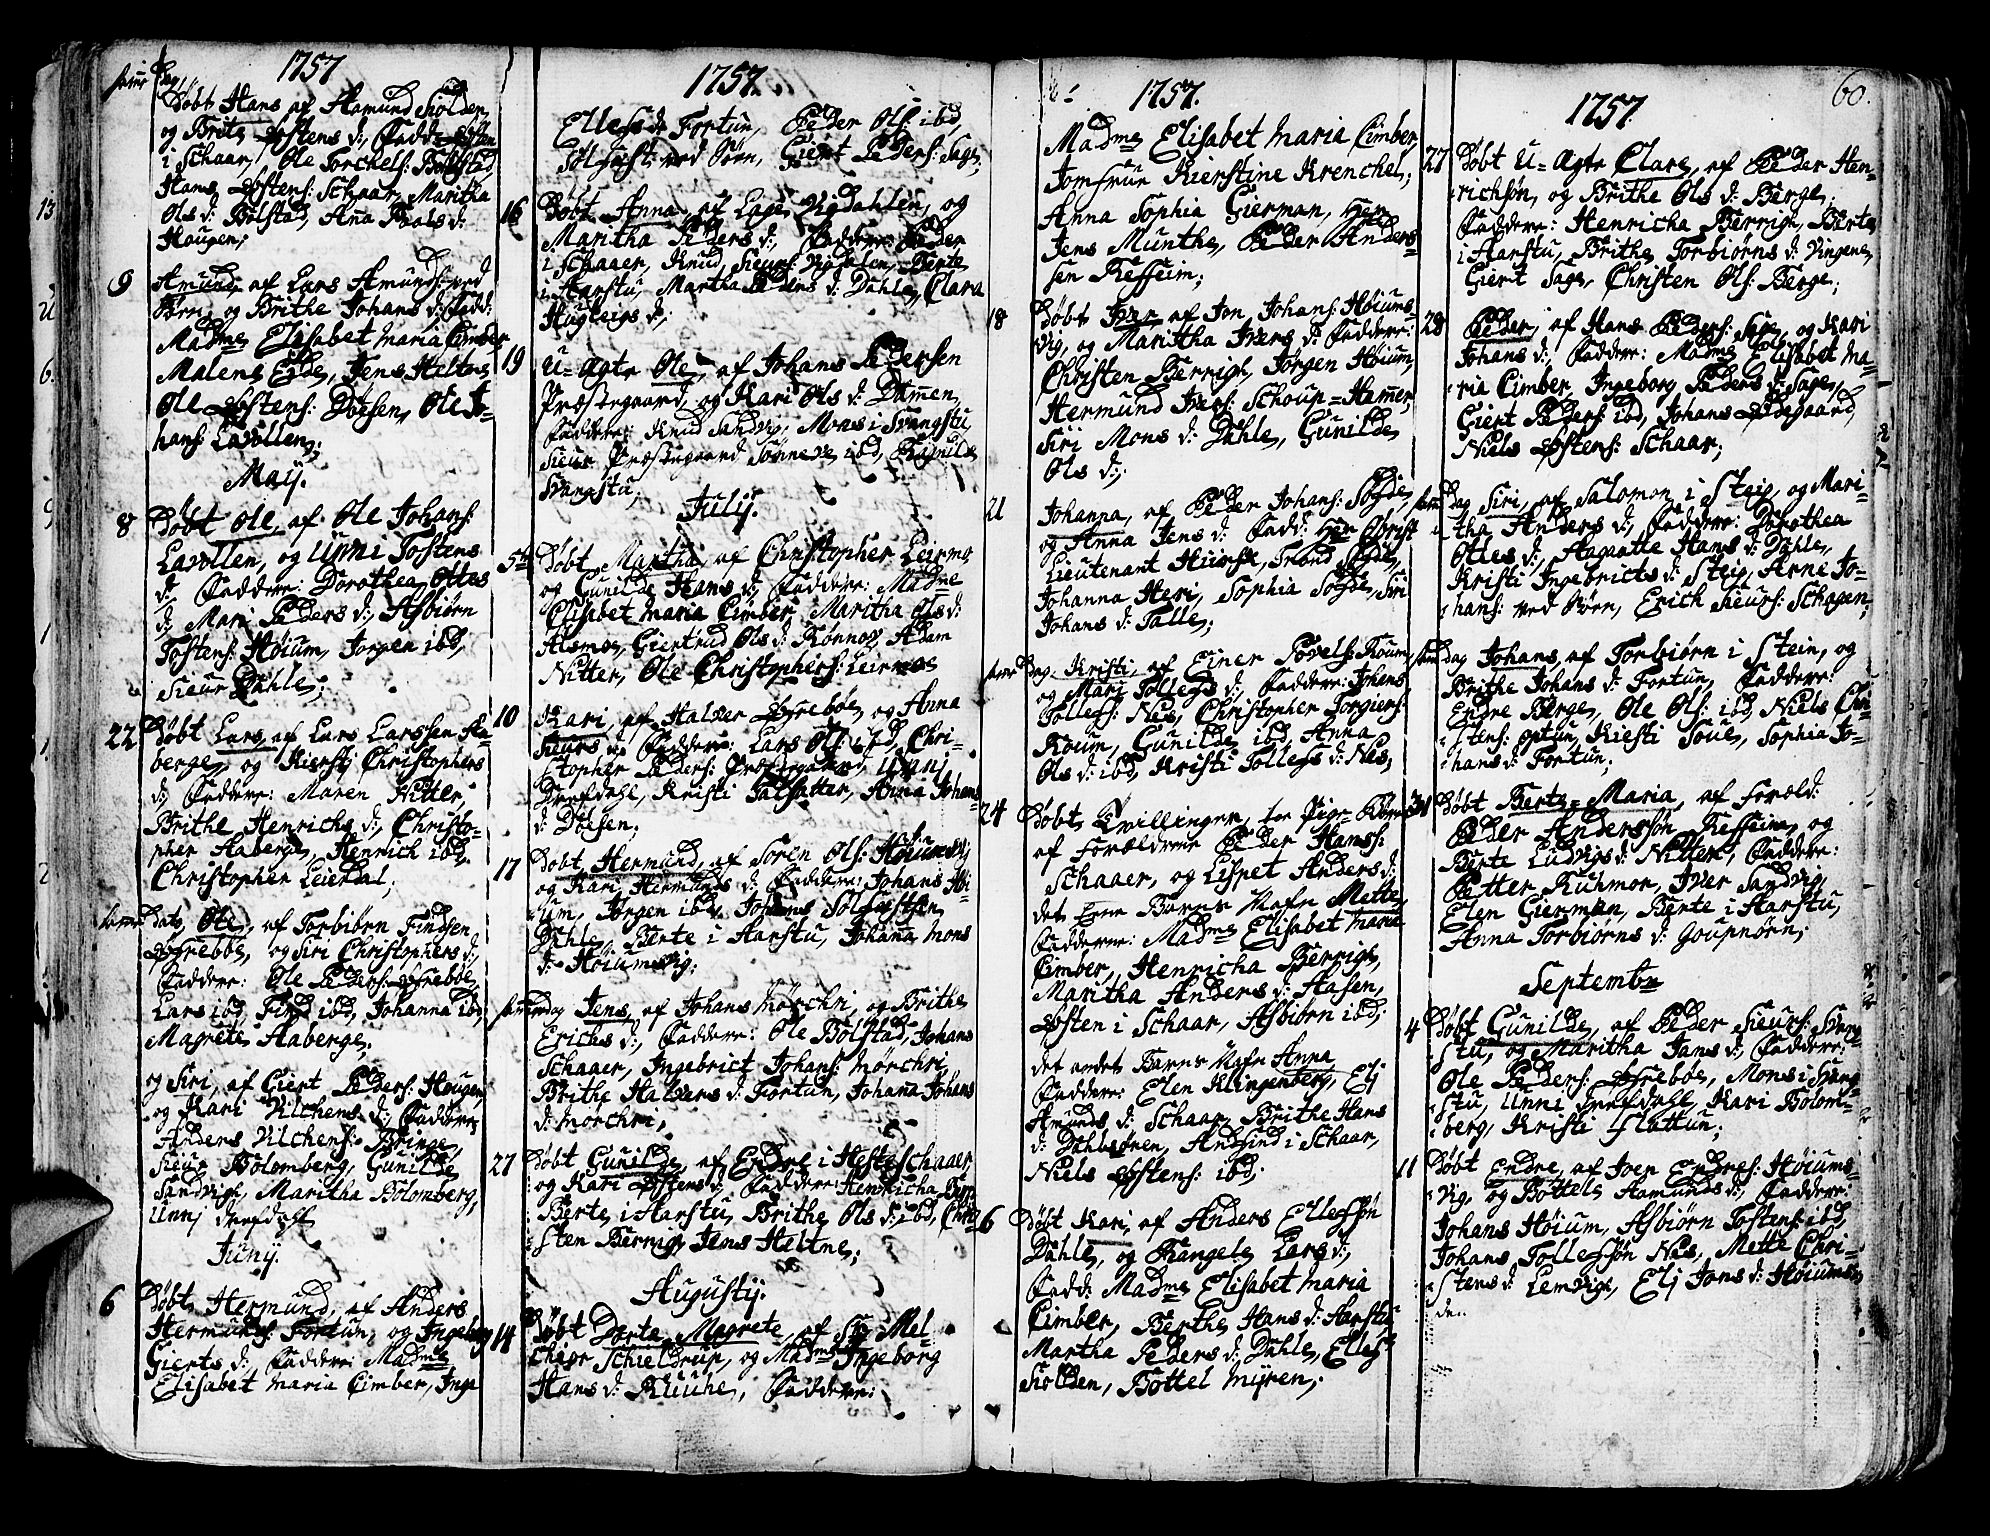 1757
samme Dag,
Døbt Hans af Hamund Siolden,
og Brite Østens d: Fadd: Østen
i Schaar, Ole Torchels: Bolstad,
Hans Østens: Schaar, Maritha
Ols d: Bolstad, Ana Povls d:
Hougen;
9 Amund, af Lars Amunds: ved
Børn, og Brithe Johans d: Fadd:
Madme Elisabet Maria Cimber
Malene Eide, Jens Heltne
Ole Østens: Døsen, Ole Jo-
hans: Lavollen;
Maij.
8 Døbt Ole, af Ole Johans:
Lavollen, og Unni Tostens
d; Faddere: Dorothea Ottes
d; Mari Peders d; Asbiørn
Tostens: Høium, Jorgen ibd,
Sieur Dahle;
22 Døbt Lars, af Lars Larssen Aa-
berge, og Kiersti Christophers
d; Faddere: Maren Nitter,
Brithe Henrichs d; Christo-
pher Aaberge, Henrich ibd,
Christopher Leirdal;
samme Dato, Ole, af Torbiørn Findsen
Ørebøe, og Siri Christophers d;
Faddere: Ole Peders: Ørebøe,
Lars ibd, Find ibd, Johanna ibd,
Magrete Aaberge;
og Siri, af Giert Peders: Hougen,
og Kari Vilchens d; Faddere
Anders Vilchens: Bringe,
Sieur Bolomberg, Gunilde
Sandvig, Maritha Bolomberg,
Unnj Drefdahl
Junij.
6 Døbt Hermund, af Anders
Hermunds: Fortun, og Ingeborg
Gierts d; Faddere: Madme
Elisabet Maria Cimber, Inge
1757.
Elles d: Fortun, Peder Ols: ibd,
Solgiest: ved Børn, Giert Peders: Sage,
16 Døbt Anna, af Lage Vigdahlen, og
Maritha Peders d; Faddere: Peder
i Schaaer, Knud Sieurs: Vigdalen, Berte
i Aarstu, Martha Peders d: Dahle, Clara
Hugleigs d;
19 U-Ægte Ole, af Johans Pedersen
Præstegaard og Kari Ols d: Dømen,
Faddere: Knud Sandvig, Moas i Svangstu,
Sieur Præstegaard Sønneve ibd, Ragnilde
Svangstu;
Julij.
5te Døbt Martha, af Christopher Leirmo
og Gunilde Hans d; Faddere: Madme
Elisabet Maria Cimber, Maritha Ols d:
Alsmoe, Giertrud Ols d: Rønnow, Adam
Nitter, Ole Christophers: Leirmoe
10 Kari, af Halvar Ørebøe, og Anna
Sieurs d; Faddere: Lars Ols: ibd, Chri-
stopher Peders: Præstegaard, Unnj
Drefdahl, Kristi Galsatter, Anna Johans
d: Døesen;
17 Døbt Hermund, af Soren Ols: Høiumsvig
og Kari Hermunds d; Faddere: Johans Høi-
um, Jørgen ibd, Johans Solgiestsen
Dahle, Berte i Aarstu, Johana Mons
d: Høiumsvig;
samme dag Jens, af Johans Mørchri, og Brithe
Erichs d; Faddere: Ole Bolstad, Johans
Schaaer, Ingebrict Johans: Mørchri,
Brithe Halvars d: Fortun, Johana Johans
d: Mørchri;
27 Døbt Gunilde, af Endre i Hesteschaaer
og Kari Østens d; Faddere: Henricha Berrig
Berte, i Aarstu, Brithe Ols d: ibd, Chri-
sten Berrig, Jens Heltne;
Augustij.
14 Døbt Dorte Magrete, af Sr: Mel-
chior Schieldrup, og Madme Ingeborg
Hans d: Ruuhe, Faddere:
1757.
Madme Elisabet Maria Cimber,
Jomfrue Kierstine Krenchel,
Anna Sophia Gierman, Her
Jens Munthe, Peder Anders-
sen Reffeim;
18 Døbt Iver af Jon Johans: Høiums-
vig, og Maritha Ivers d: Faddere:
Christen Berrigh, Jørgen Høium,
Hermund Ivers: Schoup-Hamer,
Siri Mons d: Dahle, Gunilde
Ols d;
21 Johanna, af Peder Johans: Sogde,
og Anna Jens d: Fadd: Her Obrist
Lieutenant Hiorth, Trond Sogde,
Johanna Heri, Sophia Sogde, Siri
Johans d: Talle;
samme Dag, Kristi, af Einer Povels: Roum,
og Mari Tollegs d; Faddere: Johans
Tollegs: Nes, Christopher Torgiers:
Roum, Gunilde ibd, Anna
Ols d: ibd, Kristi Tollegs d: Nes;
24 Døbt, Tvillinger, toe Pige-Børn
af Forældrene Peder Hanss:
Schaaer, og Lispet Anders d:
det Eene Barns Nafn Mette,
Faddere: Madme Elisabet Maria
Cimber, Henricha Berrigh,
Maritha Anders d: Aasen,
Østen i Schaar, Asbiørn ibd;
det andet Barns Nafn Anna
Faddere: Elen Klingenberg, Elj
Amunds d: Schaar, Brithe Hans
d: Dahlsøren, Andfind i Schaar,
Niels Østens: ibd;
26 Døbt Kari, af Anders Ellessøn
Dahle, og Rangele Lars d;
Fadd: Madme Elisabet Maria
Cimber, Berthe Hans d: Aarstu
Martha Peders d: Dahle, Elles
Siolden, Bottel Myren;
60.
1757
27 Døbt U-Ægte Clare, af Peder Hen-
richsøn, og Brithe Ols d: Berge;
Faddere: Henricha Berrigh, Berte
i Aarstu, Brithe Torbiørns d: Vingene
Giert Sage, Christen Ols: Berge;
28 Peder, af Hans Peders: Sage, og Kari
Johans d; Faddere: Madme Elisabet Ma-
ria Cimber, Ingeborg Peders d: Sage,
Giert Peders: ibd, Johans Ødegaard,
Niels Østens: Schaar;
samme dag Siri, af Salomon i Steje, og Mari-
tha Anders d; Faddere: Dorothea
Ottes d; Aagatte Hans d: Dahle,
Kristi Ingebricts d: Steje, Arne Jo-
hans: ved Børn, Erich Sieurs: Schagen;
samme dag Johans, af Torbiørn i Stein, og
Brithe Johans d: Fortun, Faddere:
Endre Berge, Ole Ols: ibd, Niels Chri-
stens: Optun, Kiesti Soue, Sophia Jo-
hans d: Fortun;
31 Døbt Berte-Maria, af Foræld:
Peder Anderssøn Reffeim, og
Berte Ludvigs d: Nitter, Faddere:
Petter Ruhmor, Iver Sandvig,
Elen Gierman, Berte i Aarstu,
Anna Torbiørns d: Goupnørn;
Septembr
4 Døbt Gunilde, af Peder Sieurs: Svang-
stu, og Maritha Jans d; Faddere:
Ole Peders: Ørebøe, Mons i Svang-
stu, Unni Drefdahl, Kari Bolom-
berg, Kristi Flattun;
11 Døbt Endre, af Joen Endres: Høiums-
vig, og Bottele Aamunds d; Faddere:
Johans Høium, Asbiørn Tostens: ibd,
Johans Tollegssøn Nes, Mette Chri-
stens d: Lemvige, Elj Jons d: Høiums-